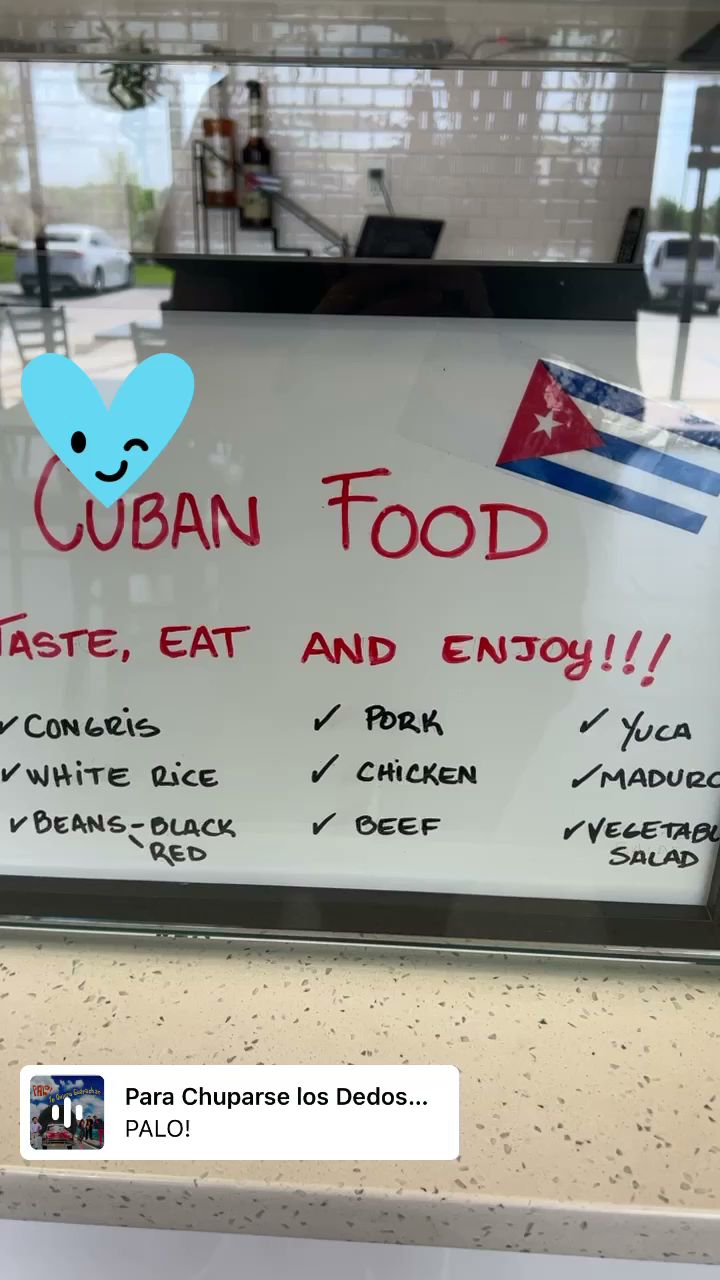 CUBAN FOOD
TASTE, EAT AND ENJOY!!!
✓ CONGRIS
✓ WHITE RICE
✓ BEANS - BLACK
RED
✓ PORK
✓ CHICKEN
✓ BEEF
✓ YUCA
✓ MADURO
✓ VEGETABL
SALAD
Para Chuparse los Dedos...
PALO!